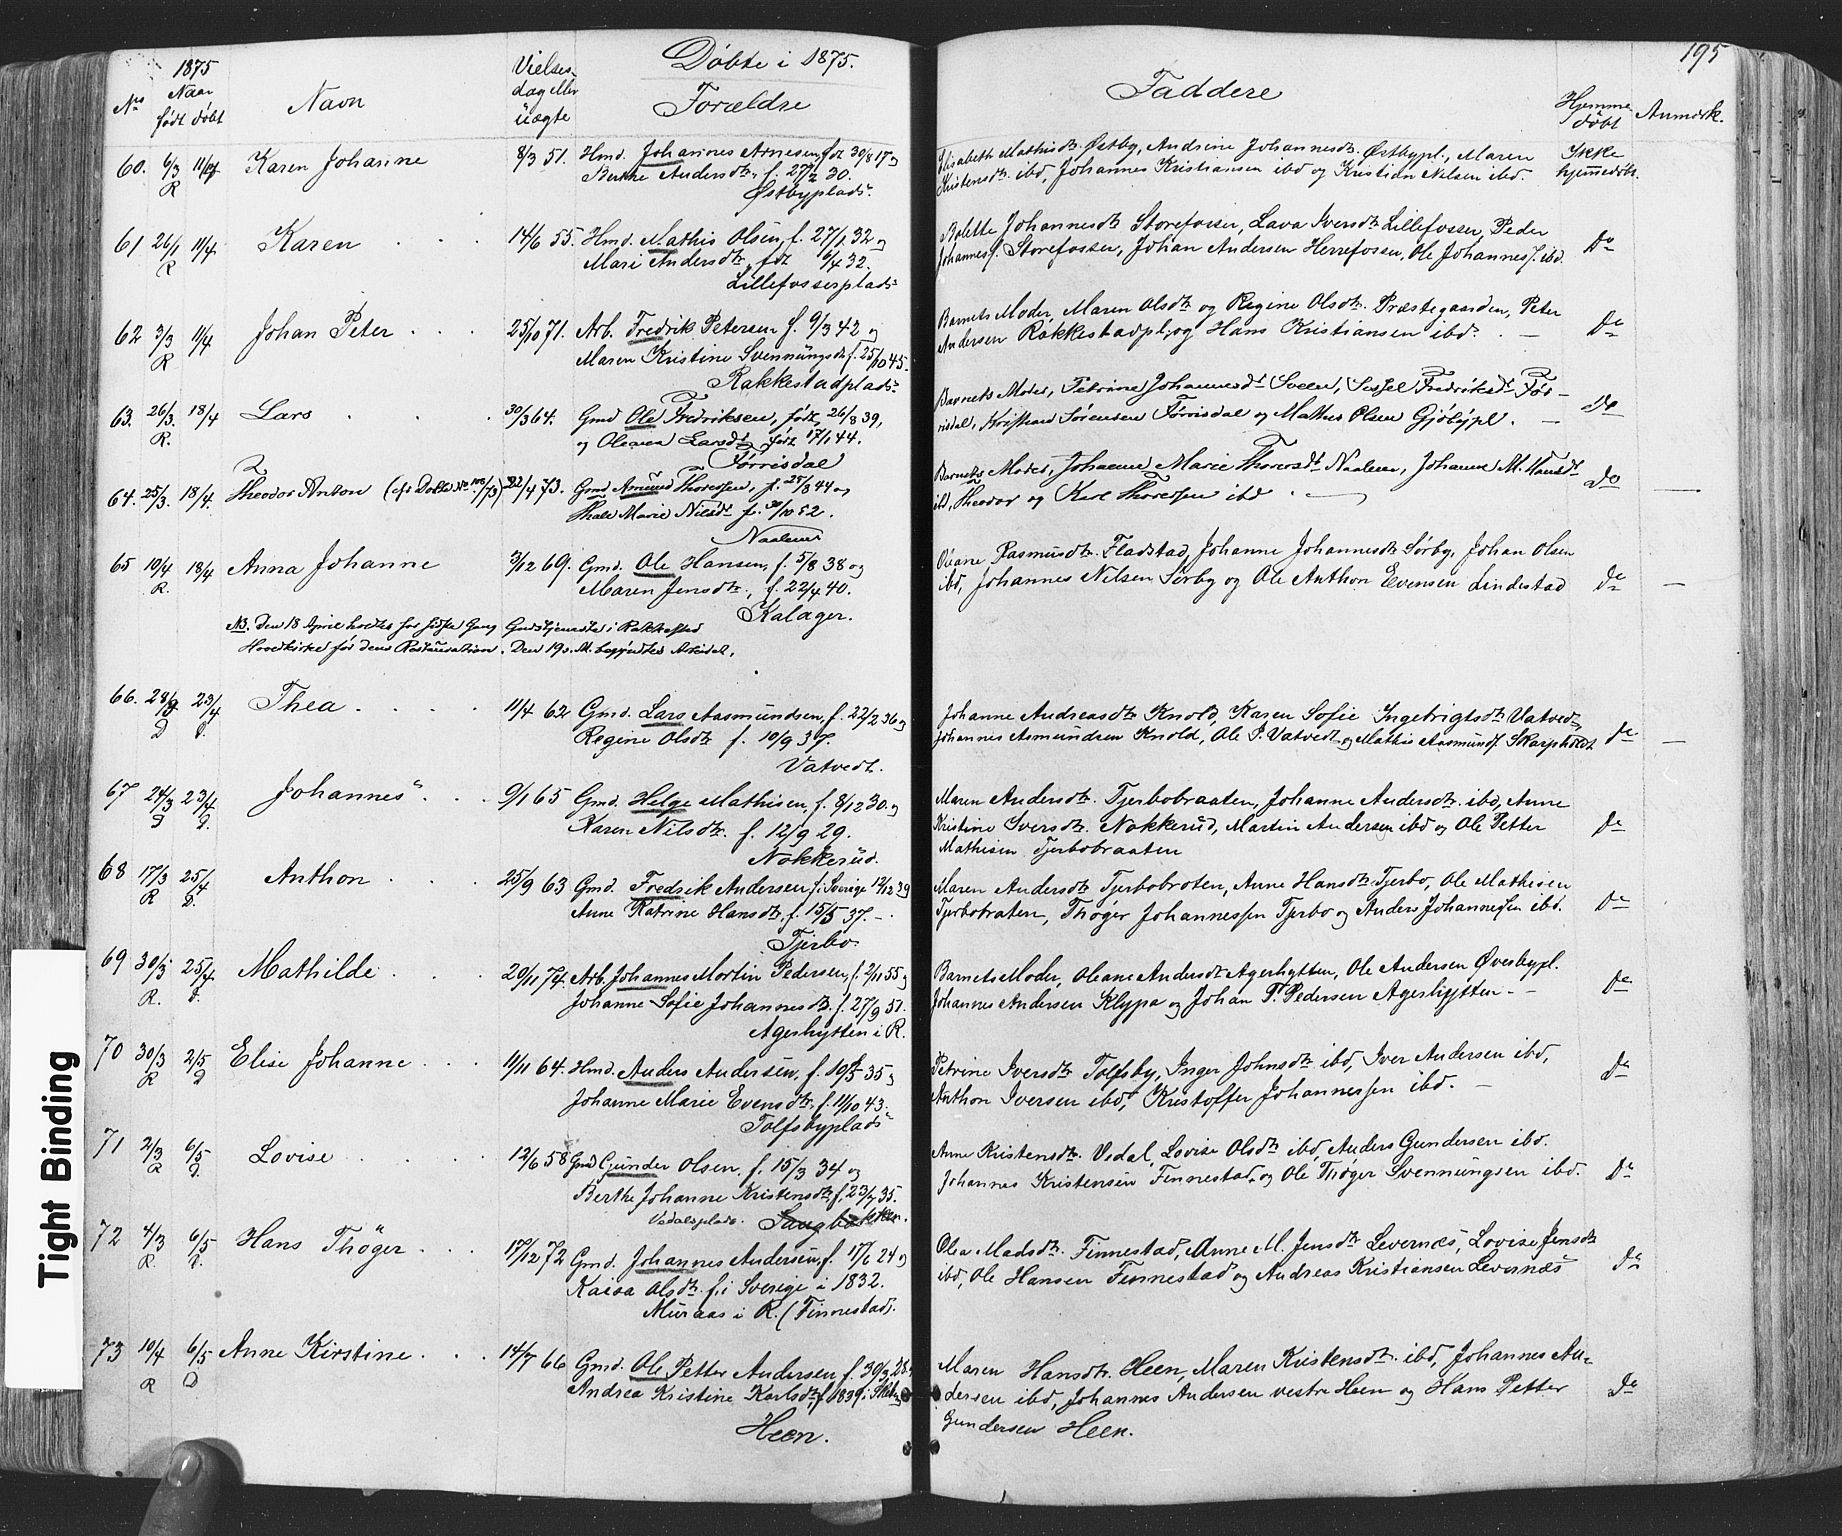 Døbte i 1875.
195
No
1875
Naar
født døbt
Navn
Vielses-
dag eller
uægte
Forældre
Faddere
Hjemme
døbt
Anmærk.
60. 6/3 11/4 Karen Johanne 8/3 51. Hmd. Johannes Arnesen, fdt 30/8 17 og
R Berthe Andersdt., f. 27/2 30.
Østbyplads.
Elisabeth Mathisdt. Østby, Andrine Johannesdt. Østbypl., Maren
Kristensdt. ibd, Johannes Kristiansen ibd og Kristian Nilsen ibd.
Ikke
hjemmedøbt.
61 26/1 11/4 Karen 14/6 55. Hmd. Mathis Olsen, f. 27/1 32 og
R Mari Andersdt., fdt 6/4 32.
Lillefosserplads
Bolette Johannesdt. Storefosser, Lava Iversdt. Lillefosser, Peder
Johannesf. Storefosser, Johan Andersen Herrefosser, Ole Johannesf. ibd.
Do
62 3/3 11/4 Johan Peter 25/10 71. Arb. Fredrik Petersen f. 9/3 42 og
R Maren Kristine Svennungsdt. f. 25/10 45.
Rakkestadplads.
Barnets Moder, Maren Olsdt. og Regine Olsdt. Præstegaarden, Peter
Andersen Rakkestadpl. og Hans Kristiansen ibd.
Do
63. 26/3. 18/4 Lars 30/3 64. Gmd Ole Fredriksen, født 26/8 39,
R. og Oleana Larsdt. født 17/1 44.
Førrisdal
Barnets Moder, Petrine Johannesdt. Sveen, Sissel Fredriksdt. Før-
risdal, Kristian Sørensen Førrisdal og Mathis Olsen Gjøbypl.
Do
64. 25/3. 18/4. Theodor Anton 22/4 73. Gmd Amund Thoresen, f. 25/8 44 og
Thale Marie Nilsdt f. 30/10 52.
Naalum
Barnets Moder, Johanne Marie Thoresdt Naalum, Johanne M. Hansdt
ibd, Theodor og Karl Thoresen ibd.
Do
65 10/4 18/4 Anna Johanne 3/12 69. Gmd. Ole Hansen, f. 5/8 38 og
R. Maren Jensdt., f. 22/4 40.
Kalager.
Oleane Rasmusdt. Fladstad, Johanne Johannesdt. Sørby, Johan Olsen
ibd, Johannes Nilsen Sørby og Ole Anthon Evensen Lindestad
Do
NB. Den 18 April holdtes for sidste Gang Gudstjeneste i Rakkestad
Hovedkirke før dens Restauration. Den 19. s. M. begyndtes Arbeidet.
66. 28/2 23/4 Thea 11/4 62 Gmd. Lars Aasmundsen, f. 22/2 36 og
D D. Regine Olsdt. f. 10/9 37.
Vatvedt.
Johanne Andreasdt. Knold, Karen Sofie Ingebrigtsdt. Vatvedt,
Johannes Asmundsen Knold, Ole P. Vatvedt og Mathis Aasmundf. Skarpholdt
Do
67 24/3 23/4 Johannes 9/1 65 Gmd. Helge Mathisen, f. 8/12 30. og
D D. Karen Nilsdt. f. 12/9 29.
Nokkerud.
Maren Andersdt. Tjerbobraaten, Johanne Andersdt. ibd, Anne
Kristine Iversdt. Nokkerud, Martin Andersen ibd og Ole Petter
Mathisen Tjerbobraaten
Do
68 17/3 25/4 Anthon 25/9 63 Gmd. Fredrik Andersen f. i Sverige 12/12 39
R D. Anne Katrine Hansdt. f. 15/5 37.
Tjerbo
Maren Andersdt. Tjerbobroten, Anne Hansdt. Tjerbo, Ole Mathisen
Tjerbobraten, Thøger Johannessen Tjerbo og Anders Johannessen ibd.
Do
69 30/3 25/4 Mathilde 20/11 74. Arb. Johannes Martin Pedersen, f. 2/11 55 og
R. D. Johanne Sofie Johannesdt. f. 27/9 51.
Agerhytten i R.
Barnets Moder, Oleane Andersdt Agerhytten, Ole Andersen Øvesbypl.
Johannes Andersen Klypa og Johan P. Pedersen Agerhytten
Do
70 30/3 2/5 Elise Johanne 11/11 64. Hmd. Anders Andersen, f. 10/5 35 og
R D Johanne Marie Evensdt. f. 11/10 43.
Tolfsbyplads
Petrine Iversdt. Tolfsby, Inger Johnsdt. ibd, Iver Andersen ibd,
Anthon Iversen ibd, Kristoffer Johannessen ibd.
Do
71 2/3 6/5 Lovise 12/6 58 Gmd Gunder Olsen, f. 15/3 34 og
R D. Berthe Johanne Kristensdt., f. 23/7 35.
Vedalsplads.
Anne Kristensdt. Vedal, Lovise Olsdt. ibd, Anders Gundersen ibd.
Johannes Kristensen Finnestad og Ole Thøger Svennungsen ibd.
Do
72 4/3 6/5 Hans Thøger 17/12 72 Gmd. Johannes Andersen, f. 17/6 24 og
R. D. Kaisa Olsdt. f. i Sverige i 1832.
Muraas i R. (Finnestad).
Olea Madsdt. Finnestad, Anne M. Jensdt. Levernæs, Lovise Jensdt
ibd, Ole Hansen Finnestad og Andreas Kristiansen Levernæs
Do
73 10/4 6/5 Anne Kirstine 14/7 66 Gmd. Ole Petter Andersen f. 30/3 28
R D Andrea Kristine Karlsdt. f. 1839
Heen.
Maren Hansdt. Heen, Maren Kristensdt. ibd, Johannes An-
dersen ibd, Johannes Andersen vestre Heen og Hans Petter
Gundersen Heen.
Do
Tight Binding